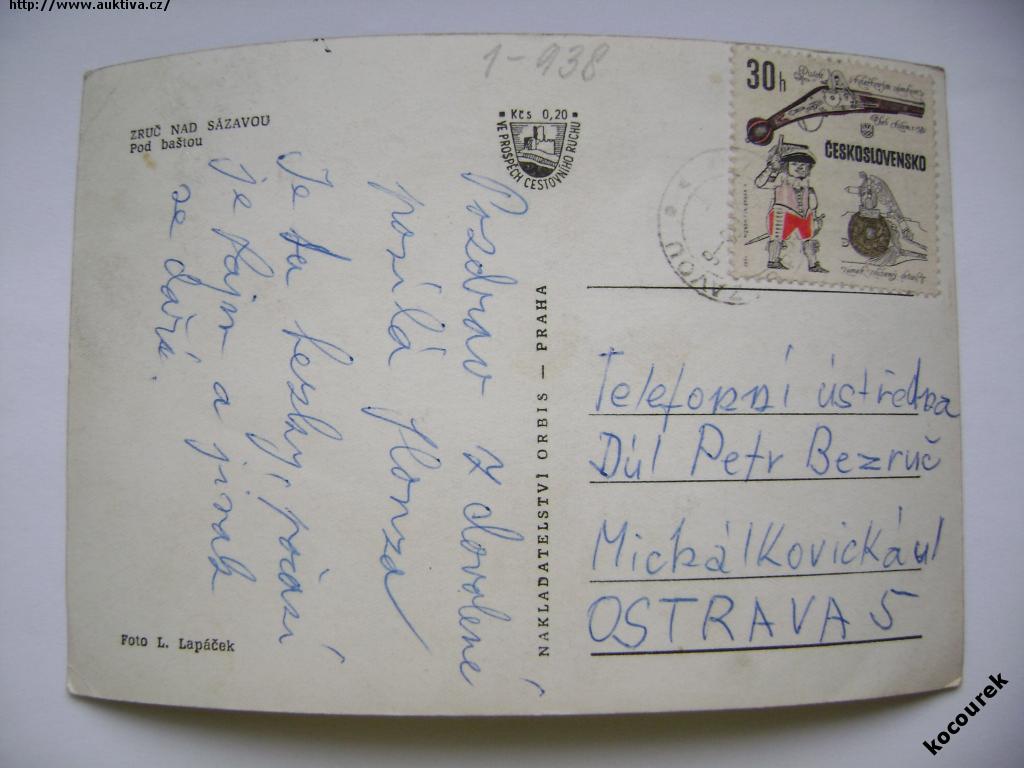 http://www.auktiva.cz/
1-938
ZRUČ NAD SÁZAVOU
Pod baštou
Kčs 0,20
VE PROSPĚCH CESTOVNÍHO RUCHU
30h
ČESKOSLOVENSKO
ZAVOU
Pozdrav z dovolené
posílá Honza
Je tu hezky, počasí
je fajn a jinak
se daří.
NAKLADATELSTVÍ ORBIS — PRAHA
Telefonní ústředna
Důl Petr Bezruč
Michálkovická ul
OSTRAVA 5
Foto L. Lapáček
kocourek